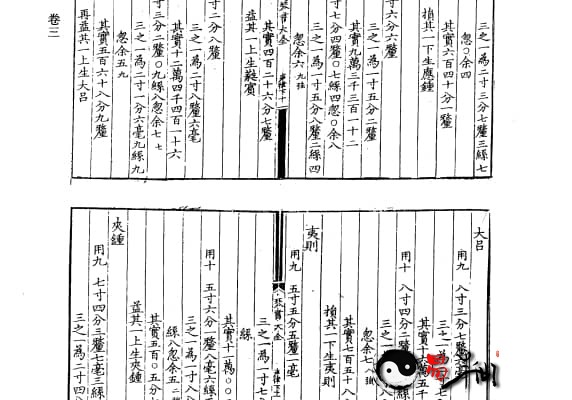 三之一為二寸三分七釐三絲七
忽〇余四
其實六百四十分一釐
損其一下生應鍾
寸六分六釐
三之一為一寸五分二釐
其實九萬三千三百一十二
寸七分四釐〇七絲四忽〇余八
三之一為一寸五分八釐二絲四
忽余六 九強
琴書大全
其實四百二十六分七釐
益其一上生蕤賓
寸二分八釐
三之一為二寸八釐六毫
其實十二萬四千四百一十六
寸三分二釐〇九絲八忽余七七
三之一為二寸一分六毫九絲九
忽余五九
其實五百六十八分九釐
再益其一上生大呂
卷三
大呂
用九 八寸三分七釐
三之一為二
其實十
用十 八寸四分
三之一為
忽余
其實七百五十八
損其一下生夷則
夷則
用九 五寸五分五釐一毫
琴書大全
三之一為一寸七
絲
其實十一萬
用十 五寸六分一釐八毫六絲
三之一為一寸八
絲八忽余五
其實五百〇五分
益其一上生夾鍾
夾鍾
用九 七寸四分三釐七毫三絲
三之一為二寸四